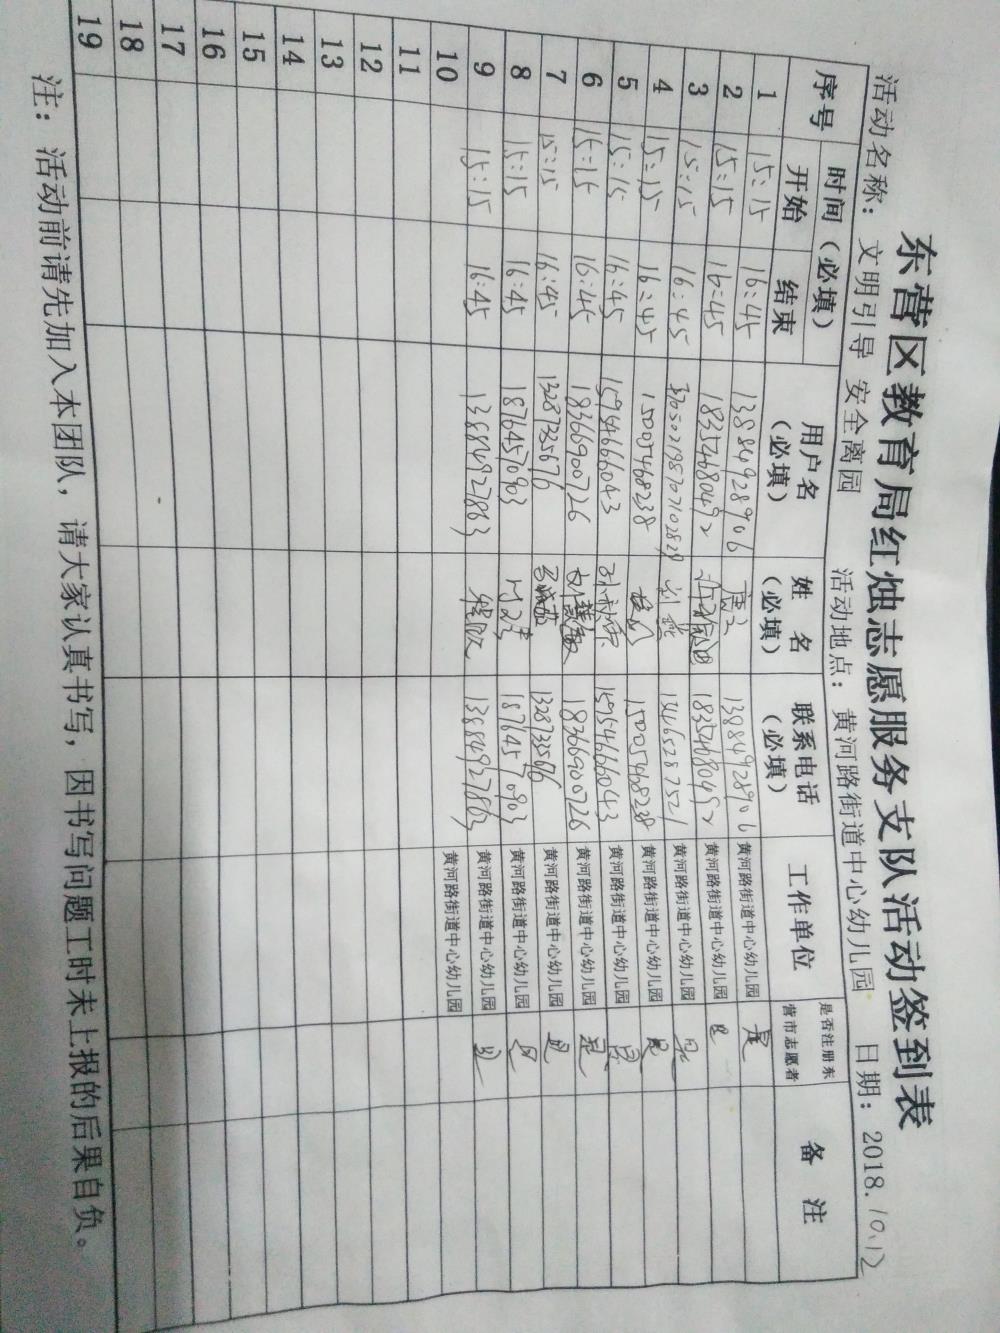 东营区教育局红烛志愿服务支队活动签到表
活动名称：文明引导 安全离园 活动地点：黄河路街道中心幼儿园 日期：2018.10.12
序号 时间（必填） 用户名（必填） 姓名（必填） 联系电话（必填） 工作单位 是否注册东营市志愿者 备注
开始 结束
1 15:15 16:45 13884928906 13884928906 黄河路街道中心幼儿园 是
2 15:15 16:45 18354680492 18354680492 黄河路街道中心幼儿园 是
3 15:15 16:45 刘燕 13465287521 黄河路街道中心幼儿园 是
4 15:15 16:45 15005468238 15005468238 黄河路街道中心幼儿园 是
5 15:15 16:45 15954666043 15954666043 黄河路街道中心幼儿园 是
6 15:15 16:45 18366900726 18366900726 黄河路街道中心幼儿园 是
7 15:15 16:45 13287335676 13287335676 黄河路街道中心幼儿园 是
8 15:15 16:45 18764570903 18764570903 黄河路街道中心幼儿园 是
9 15:15 16:45 13884927863 13884927863 黄河路街道中心幼儿园 是
10 黄河路街道中心幼儿园
11
12
13
14
15
16
17
18
19
注：活动前请先加入本团队，请大家认真书写，因书写问题工时未上报的后果自负。